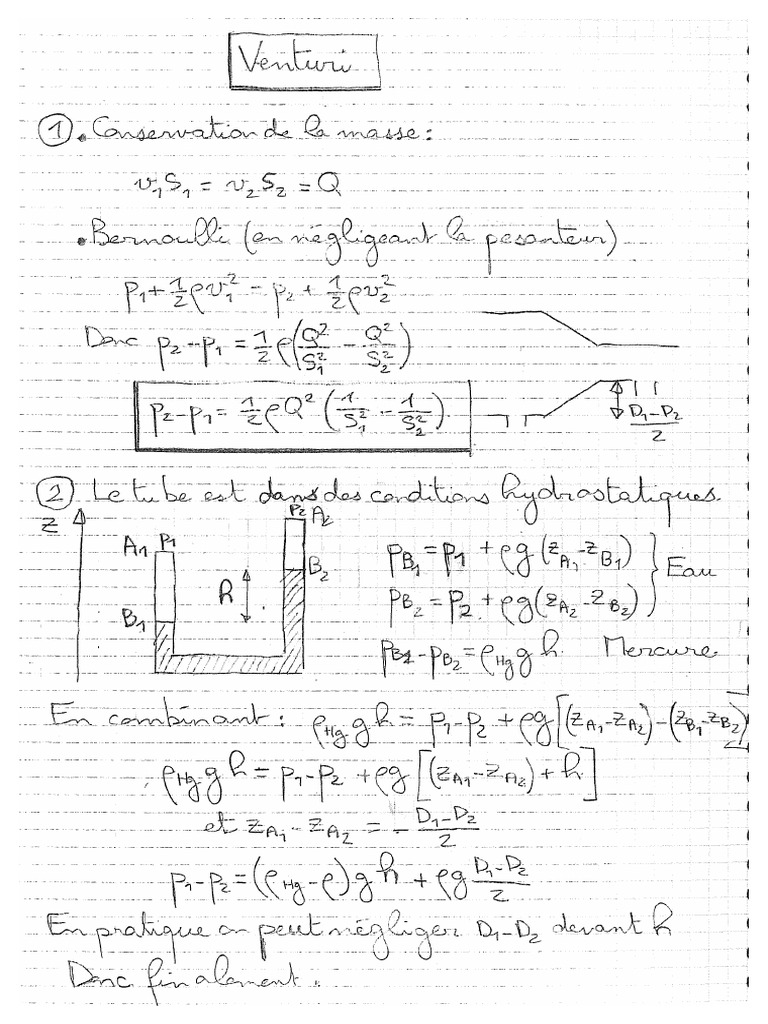 Venturi
① • Conservation de la masse :
v₁S₁ = v₂S₂ = Q
• Bernoulli (en négligeant la pesanteur)
p₁ + 1/2 ρv₁² = p₂ + 1/2 ρv₂²
Donc p₂ - p₁ = 1/2 ρ(Q²/S₁² - Q²/S₂²)
p₂ - p₁ = 1/2 ρQ² (1/S₁² - 1/S₂²)
(D₁-D₂)/2
② Le tube est dans des conditions hydrostatiques.
z
A₁ p₁
p₂ A₂
B₁
h
B₂
p_B₁ = p₁ + ρg(z_A₁ - z_B₁)
p_B₂ = p₂ + ρg(z_A₂ - z_B₂)
Eau
p_B₁ - p_B₂ = ρ_Hg g h Mercure
En combinant : ρ_Hg g h = p₁ - p₂ + ρg[(z_A₁ - z_A₂) - (z_B₁ - z_B₂)]
ρ_Hg g h = p₁ - p₂ + ρg[(z_A₁ - z_A₂) + h]
et z_A₁ - z_A₂ = - (D₁-D₂)/2
p₁ - p₂ = (ρ_Hg - ρ) g h + ρg (D₁-D₂)/2
En pratique on peut négliger D₁-D₂ devant h
Donc finalement :